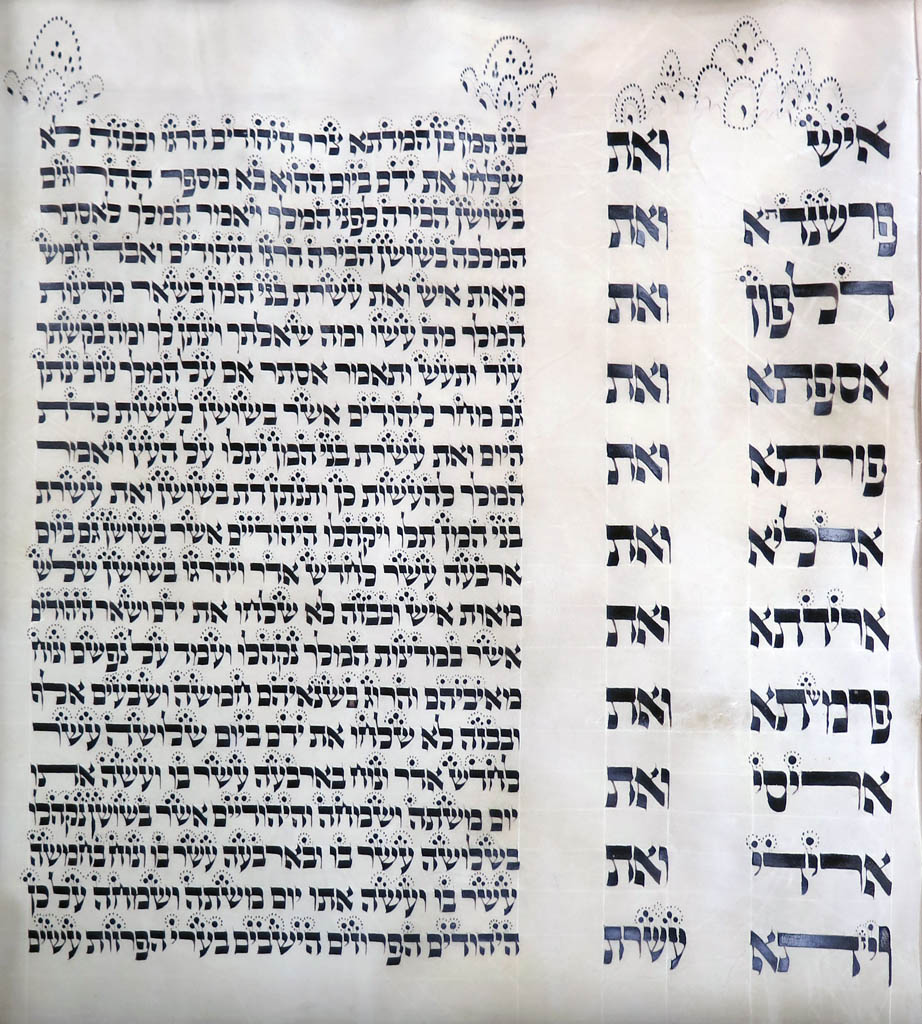 איש ואת
פרשנדתא ואת
דלפון ואת
אספתא ואת
פורתא ואת
אדליא ואת
ארידתא ואת
פרמשתא ואת
אריסי ואת
ארידי ואת
ויזתא עשרת
בני המן בן המדתא צרר היהודים הרגו ובבזה לא
שלחו את ידם ביום ההוא בא מספר ההרוגים
בשושן הבירה לפני המלך ויאמר המלך לאסתר
המלכה בשושן הבירה הרגו היהודים ואבד חמש
מאות איש ואת עשרת בני המן בשאר מדינות
המלך מה עשו ומה שאלתך וינתן לך ומה בקשתך
עוד ותעש ותאמר אסתר אם על המלך טוב ינתן
גם מחר ליהודים אשר בשושן לעשות כדת
היום ואת עשרת בני המן יתלו על העץ ויאמר
המלך להעשות כן ותנתן דת בשושן ואת עשרת
בני המן תלו ויקהלו היהודיים אשר בשושן גם ביום
ארבעה עשר לחדש אדר ויהרגו בשושן שלש
מאות איש ובבזה לא שלחו את ידם ושאר היהודים
אשר במדינות המלך נקהלו ועמד על נפשם ונוח
מאיביהם והרוג בשנאיהם חמשה ושבעים אלף
ובבזה לא שלחו את ידם ביום שלושה עשר
לחדש אדר ונוח בארבעה עשר בו ועשה אתו
יום משתה ושמחה והיהודיים אשר בשושן נקהלו
בשלשה עשר בו ובארבעה עשר בו ונוח בחמשה
עשר בו ועשה אתו יום משתה ושמחה על כן
היהודים הפרוזים הישבים בערי הפרזות עשים